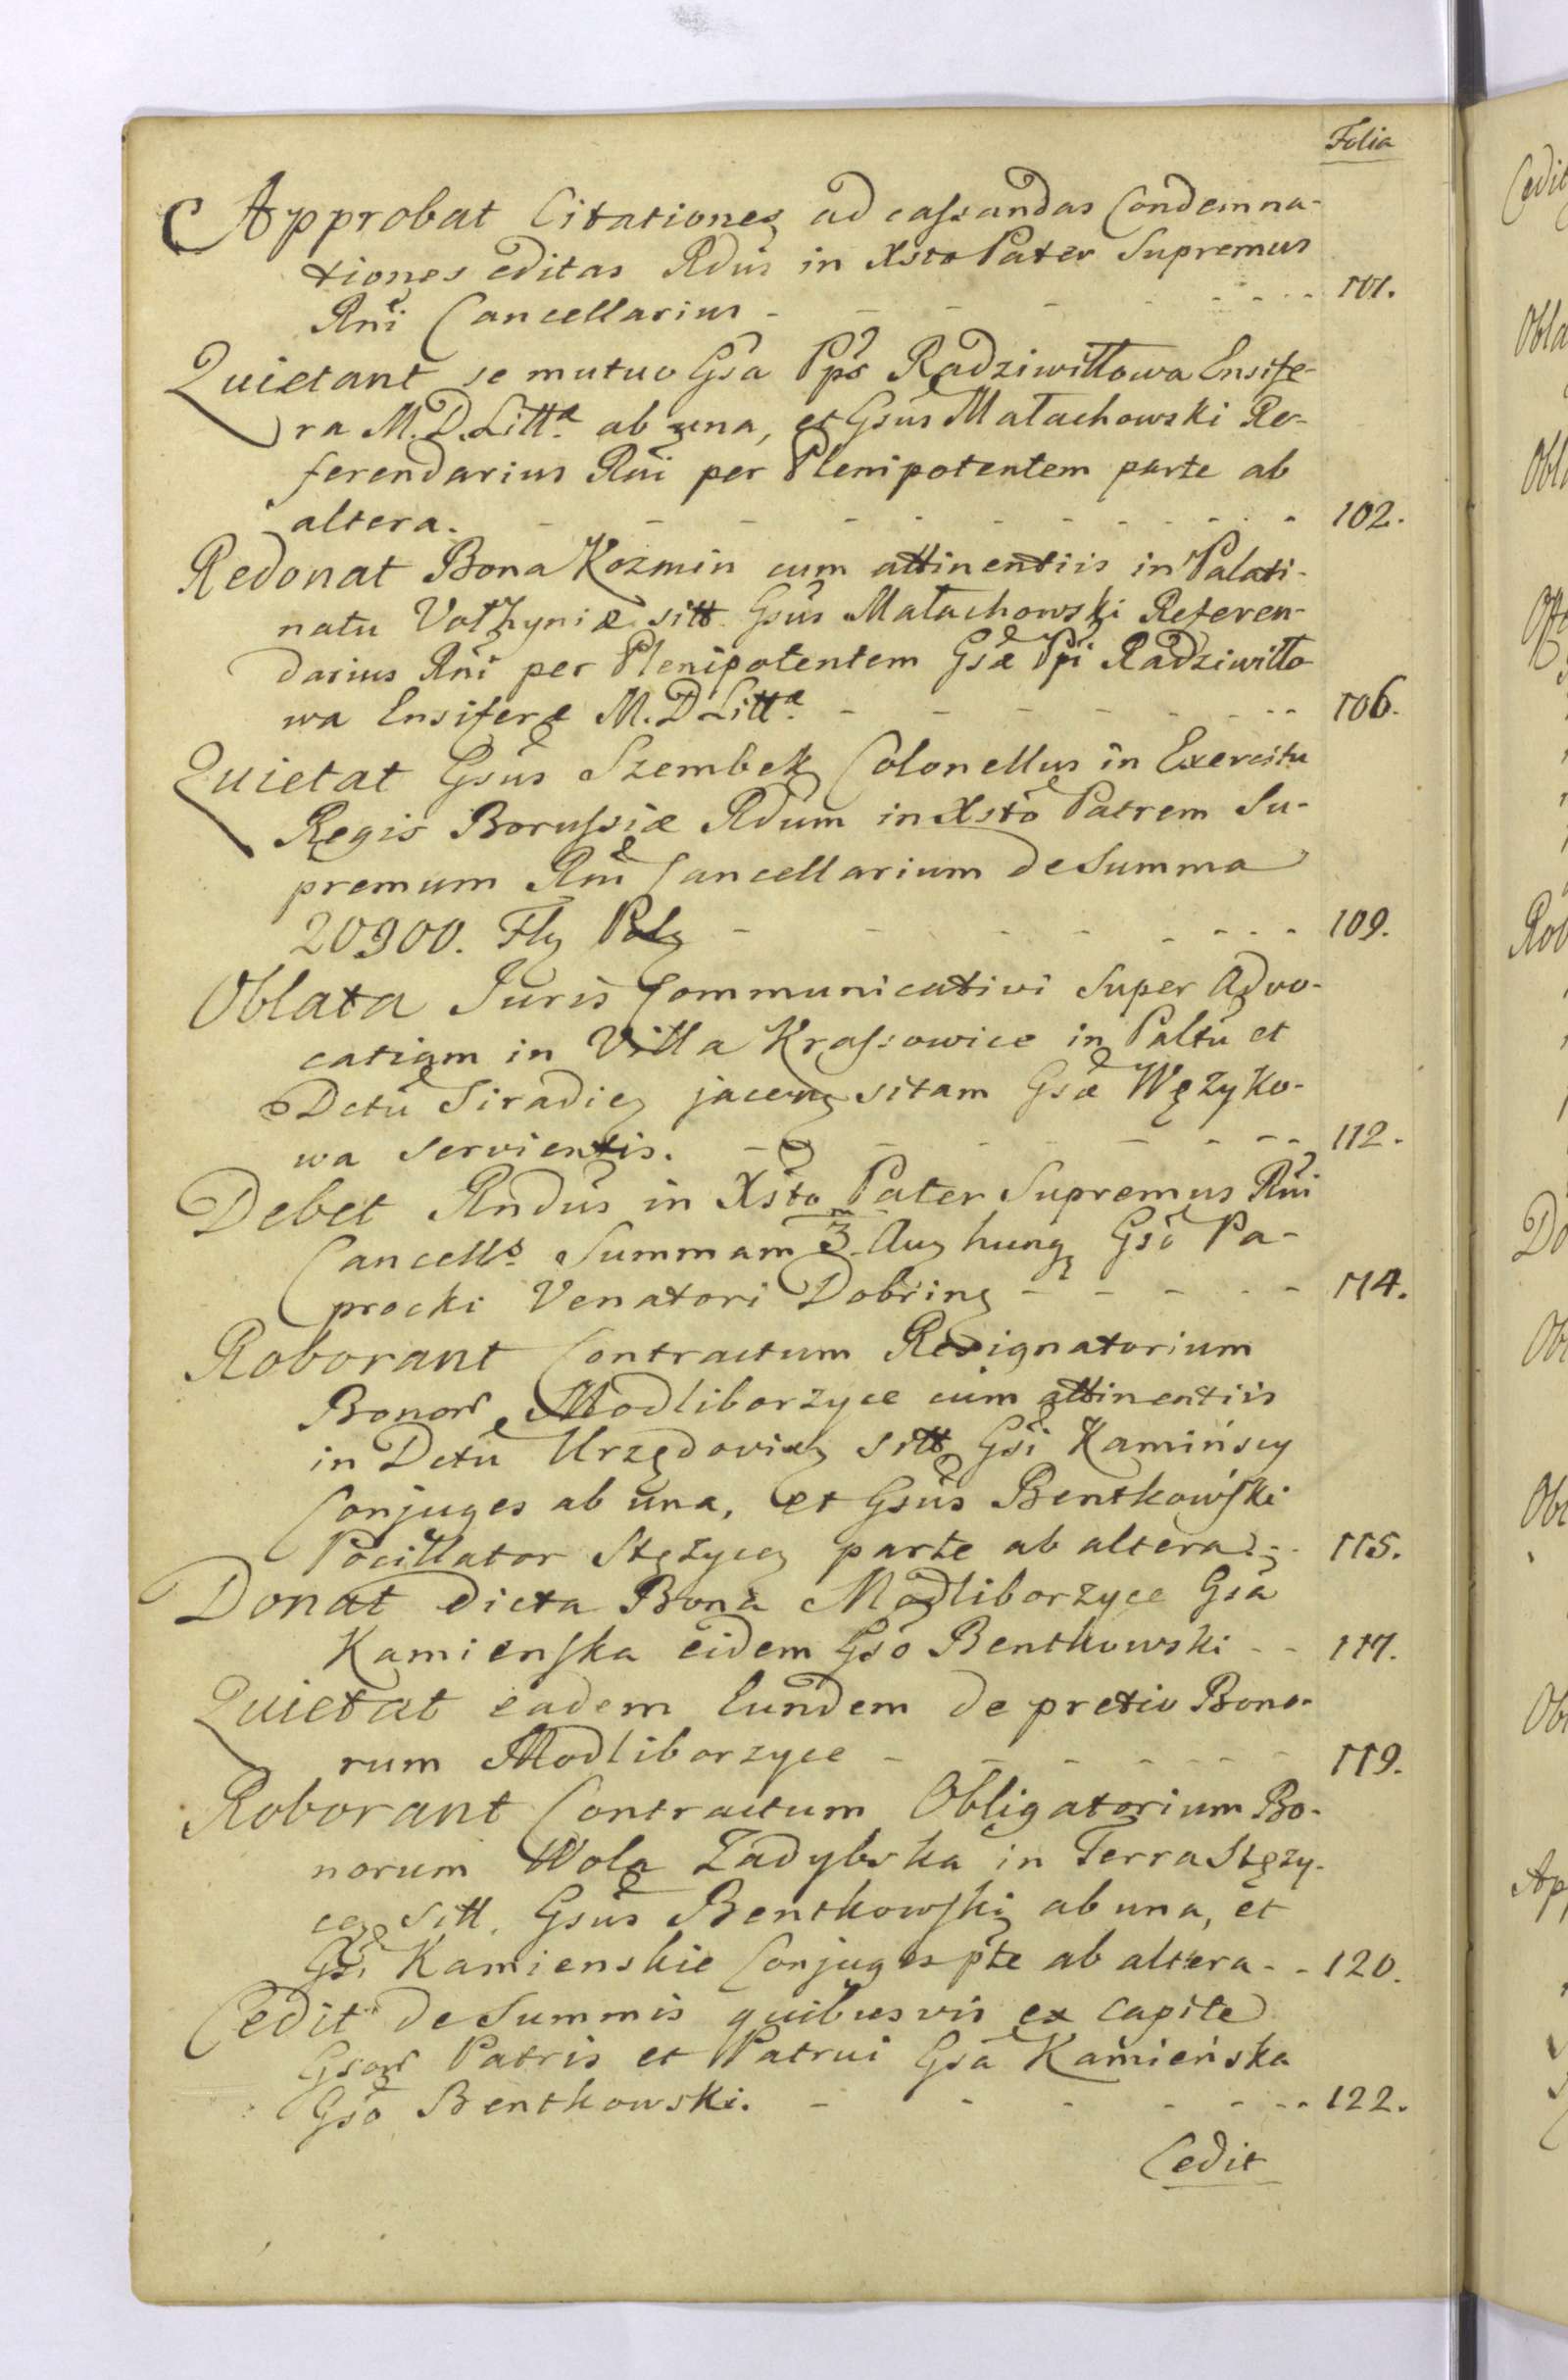 Folia
Approbat Citationes ad cassandas Condemna-
tiones editas Rdus in Xsto Pater Supremus
Rni Cancellarius - - - - - - - 101.
Quietant se mutuo Gsa Pps Radziwiłłowa Ensife-
ra M. D. Litt.æ ab una, et Gsus Małachowski Re-
ferendarius Rni per Plenipotentem parte ab
altera. - - - - - - - - - - 102.
Redonat Bona Kozmin cum attinentiis in Palati-
natu Vołhyniæ sitt. Gsus Małachowski Referen-
darius Rni per Plenipotentem Gsæ Ppi Radziwiłło-
wa Ensiferæ M. D Litt.æ - - - - - - 106.
Quietat Gsus Szembek Colonellus in Exercitu
Regis Borussiæ Rdum in Xsto Patrem Su-
premum Rni Cancellarium de Summa
20900. Flg Polg - - - - - - 109.
Oblata Juris Communicativi Super Advo-
catiam in Villa Krassowice in Paltu et
Dctu Siradieg jaceng sitam Gsæ Wężyko-
wa servientis. - - - - - - 112.
Debet Rndus in Xsto Pater Supremus Rni
Cancell.s Summam 3.m Aug hung Gso Pa-
procki Venatori Dobring - - - - - 114.
Roborant Contractum Resignatorium
Bonor Modliborzyce cum attinentiis
in Dctu Urzędovieg sitt Gsi Kamińscy
Conjuges ab una, et Gsus Bentkowski
Pocillator Stężyceg parte ab altera. - - 115.
Donat dicta Bona Modliborzyce Gsa
Kamienska eidem Gso Bentkowski - - 117.
Quietat eadem Eundem de pretio Bono-
rum Modliborzyce - - - - - - 119.
Roborant Contractum Obligatorium Bo-
norum Wola Zadybska in Terra Stęży-
ceg sitt. Gsus Bentkowski ab una, et
Gsi Kamienskie Conjuges pte ab altera - - 120.
Cedit de Summis quibusvis ex capite
Gsor Patris et Patrui Gsa Kamieńska
Gso Bentkowski. - - - - - - 122.
Cedit